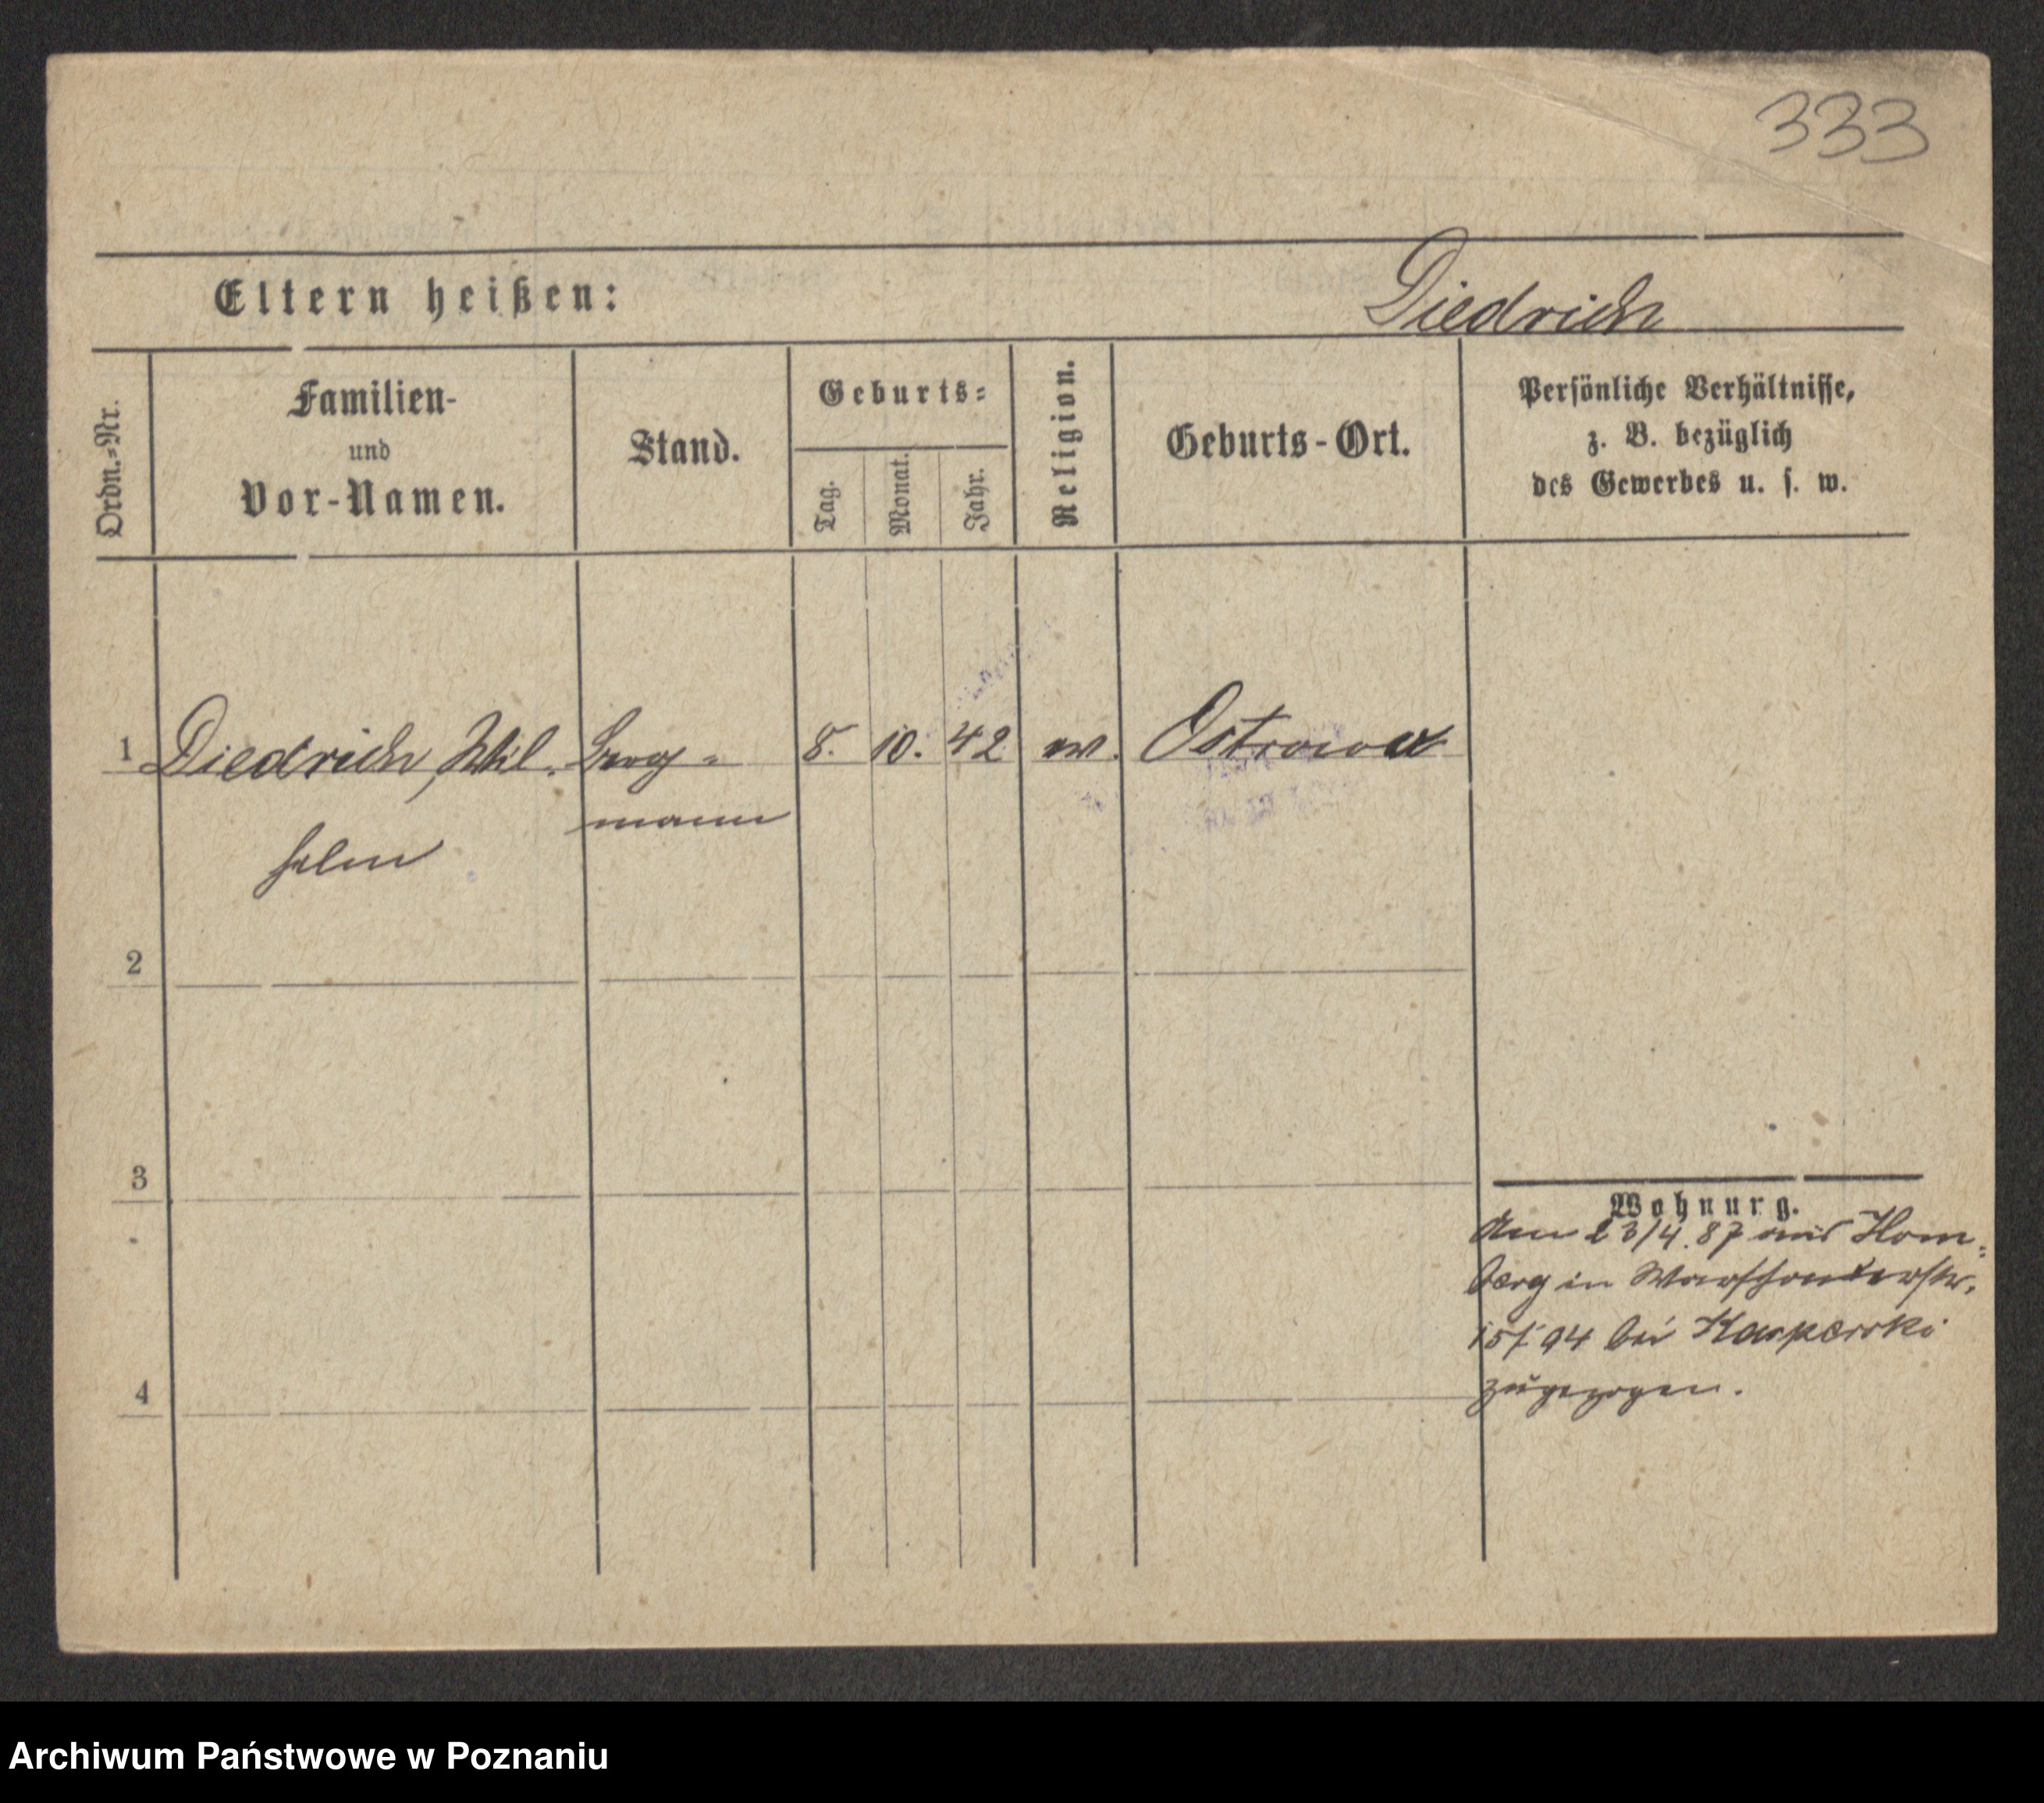 333
Eltern heißen:
Diedrich
Ordn.-Nr.
Familien-
und
Vor-Namen.
Stand.
Geburts-
Tag.
Monat.
Jahr.
Religion.
Geburts-Ort.
Persönliche Verhältnisse,
z. B. bezüglich
des Gewerbes u. s. w.
1 Diedrich, Wil- Berg- 8. 10. 42 ev. Ostrowo
mann
helm
2
3
Wohnung.
Am 23/4. 87 aus Hom-
berg in Warschauerstr.
bei Kasperski
4
zugezogen.
Archiwum Państwowe w Poznaniu